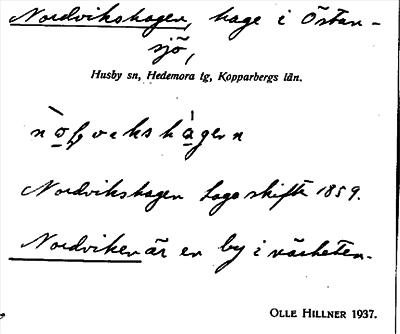 Nordvikshagen, hage i Östan-
sjö,
Husby sn, Hedemora tg, Kopparbergs län.
Nordvikshagen Laga skifte 1859.
Nordviken är en by i närheten.
OLLE HILLNER 1937.